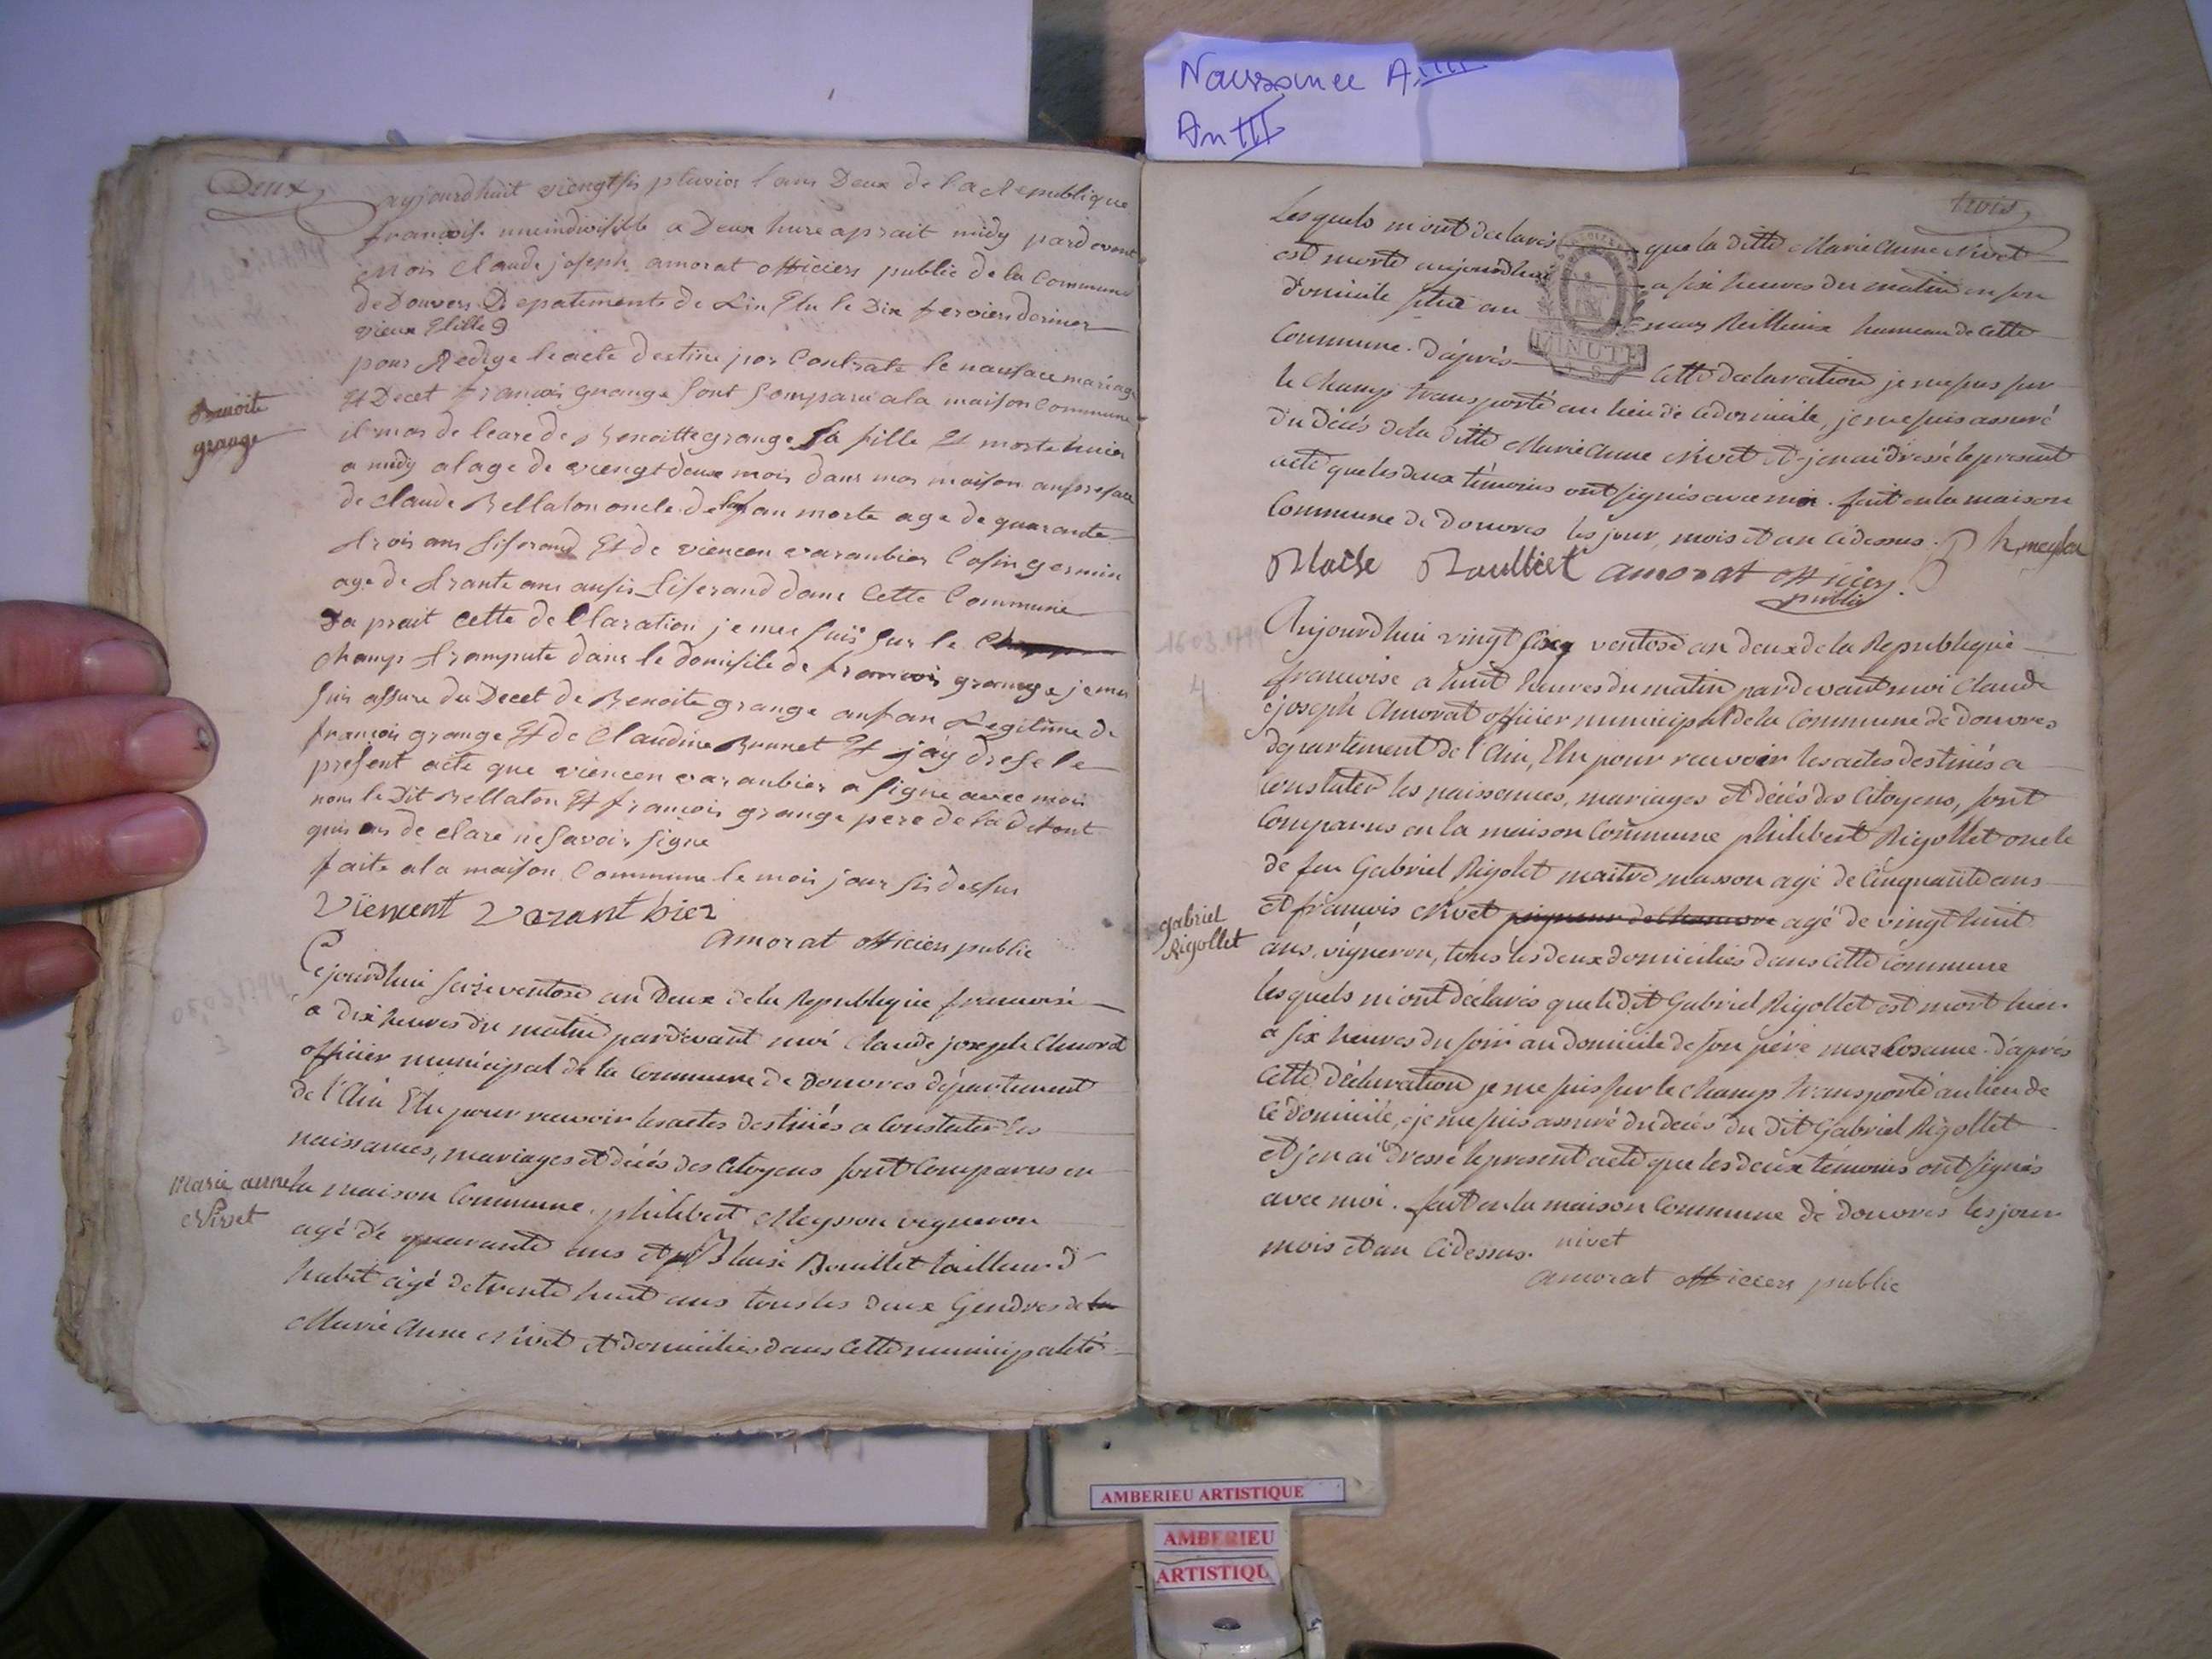 Naissance A IIII
An III
Deux
aujourdhuit viengtsis pluvios lans Deux de la Republique
francoise uneindivisible a Deux hure aprait midy pardevent
Mois Claude joseph amorat officiers public de la Commune
de Douvers Depatements de Lin Elu le Dix
vieux stille
pour Redige leacte destine
Et Decet francois grange sont Compare a la maison Commune
Benoite
grange
il mas de leare de Benoitte grange sa fille Et morte huier
a midy a lage de viengtdeux mois dans mas maison
de Claude Bellaton oncle de morte age de quarante
trois ans tiserand Et de viencen varanbier Cosin germin
age de trante ans ausis tiserand dans Cette Commune
Da prait Cette de Claration je mes suis sur le
Champ trampute dans le domisile de francois grange je me
suis assure du Decet de Benoite grange anfan Legitime de
francois grange Et de Claudine Brunet Et jay drese le
present acte que viencen varanbier a signe avec mois
nom le Dit Bellaton Et francois grange pere de la
quis de clare ne savoir signe
faite a la maison Commune le mois jour sis dessus
Viencent Varant bier
amorat officiers public
Cejourdhui seize ventose an Deux de la Republique francoise
a dix heures du matin pardevant moi Claude joseph Amorat
officier municipal de la Commune de Douvres département
de l'Ain Elu pour recevoir les actes destinés a Constater les
naissances, mariages et décés des Citoyens sont Comparus en
Marie anne
Nivet
la maison Commune philibert Meysson vigneron
agé de quarante ans et Blaise Bouillet tailleur d
habit agé de trente huit ans tous les deux Gendres de la
Marie Anne Nivet et domiciliés dans Cette municipalité
trois
Lesquels m'ont declarés que la ditte Marie Anne Nivet
est morte aujourdhui a six heures du matin en son
domicile situé au hameau de Cette
MINUTE
Commune. d'après Cette declaration je me suis sur
le Champ transporté au lieu de ce domicile, je me suis assuré
du décés de la ditte Marie Anne Nivet et j'en ai dressé le present
acte que les deux témoins ont signés avec moi. fait en la maison
Commune de Douvres les jour, mois et an cidessus.
Blaise Boulliet amorat officiers
public
16 03 1794
4
Aujourdhui vingt six ventose an deux de la Republique
francoise a huit heures du matin pardevant moi Claude
joseph Amorat officier municipal de la Commune de Douvres
département de l'Ain, Elu pour recevoir les actes destinés a
Constater les naissances, mariages et décés des Citoyens, sont
Comparus en la maison Commune philibert Rigollet oncle
de feu Gabriel Rigolet maitre masson agé de Cinquante ans
gabriel
Rigollet
et francois Nivet pigneur de chanvre agé de vingt huit
ans, vigneron, tous les deux domiciliés dans Cette Commune
lesquels m'ont déclarés que le dit Gabriel Rigollet est mort hier
a six heures du soir au domicile de son père d'après
Cette déclaration je me suis sur le Champ transporté au lieu de
Ce domicile, je me suis assuré du decés du dit Gabriel Rigollet
et j'en ai dressé le present acte que les deux témoins ont signés
avec moi. fait en la maison Commune de Douvres les jour
mois et an Cidessus. nivet
amorat officiers public
AMBERIEU ARTISTIQUE
AMBERIEU
ARTISTIQU